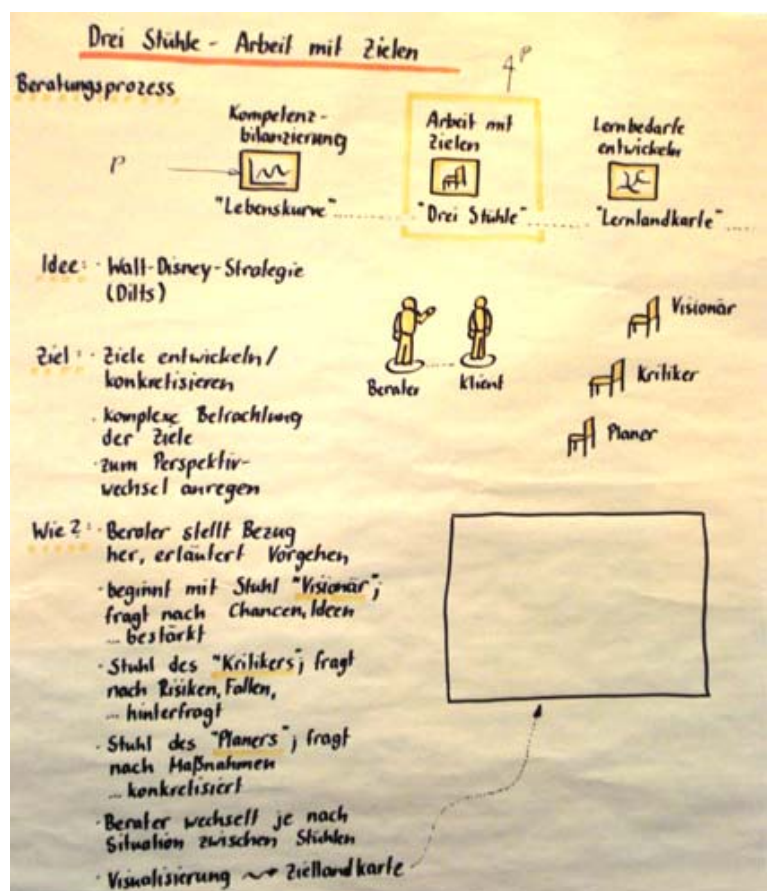 Drei Stühle - Arbeit mit Zielen
Beratungsprozess
P
Kompetenz-
bilanzierung
"Lebenskurve"
P
Arbeit mit
Zielen
"Drei Stühle"
Lernbedarfe
entwickeln
"Lernlandkarte"
Idee: · Walt-Disney-Strategie
(Dilts)
Ziel: · Ziele entwickeln/
konkretisieren
· komplexe Betrachtung
der Ziele
· zum Perspektiv-
wechsel anregen
Berater
Klient
Visionär
Kritiker
Planer
Wie?: · Berater stellt Bezug
her, erläutert Vorgehen
· beginnt mit Stuhl "Visionär";
fragt nach Chancen, Ideen
... bestärkt
· Stuhl des "Kritikers"; fragt
nach Risiken, Fallen,
... hinterfragt
· Stuhl des "Planers"; fragt
nach Maßnahmen
... konkretisiert
· Berater wechselt je nach
Situation zwischen Stühlen
· Visualisierung Ziellandkarte